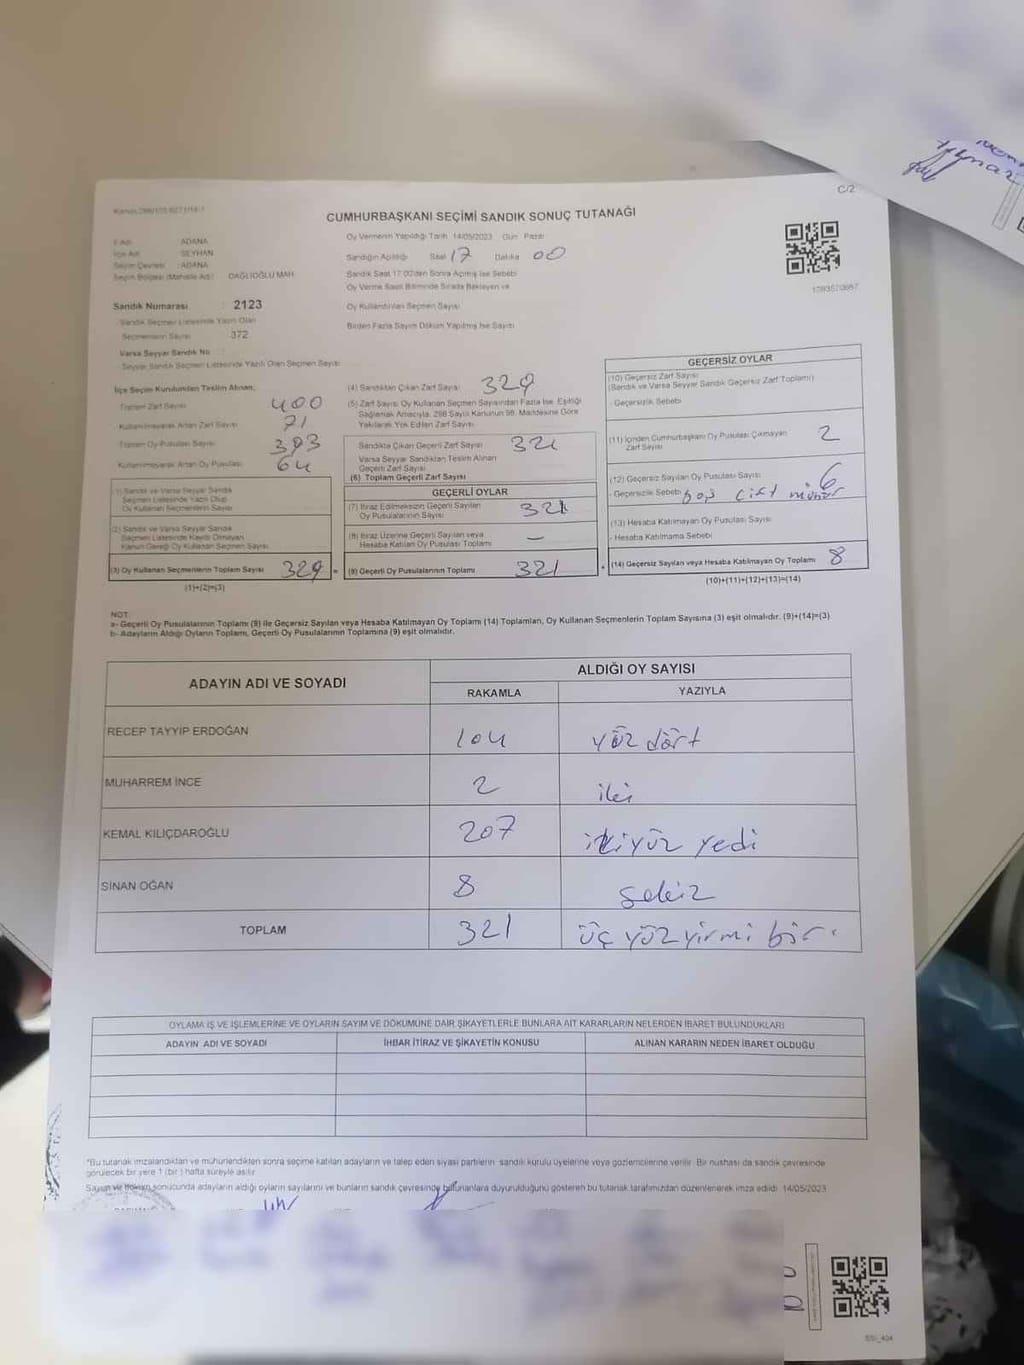 C/2
CUMHURBAŞKANI SEÇİMİ SANDIK SONUÇ TUTANAĞI
İl Adı ADANA
İlçe Adı SEYHAN
Seçim Çevresi ADANA
Seçim Bölgesi (Mahalle Adı) DAĞLIOĞLU MAH.
Sandık Numarası : 2123
Sandık Seçmen Listesinde Yazılı Olan
Seçmenlerin Sayısı 372
Varsa Seyyar Sandık No :
Seyyar Sandık Seçmen Listesinde Yazılı Olan Seçmen Sayısı
Oy Vermenin Yapıldığı Tarih 14/05/2023 Gün Pazar
Sandığın Açıldığı Saat 17 Dakika 00
Sandık Saat 17:00'den Sonra Açılmış İse Sebebi
Oy Verme Saati Bitiminde Sırada Bekleyen ve
Oy Kullandırılan Seçmen Sayısı
Birden Fazla Sayım Döküm Yapılmış İse Sayısı
İlçe Seçim Kurulundan Teslim Alınan;
Toplam Zarf Sayısı 400
Kullanılmayarak Artan Zarf Sayısı 71
Toplam Oy Pusulası Sayısı 393
Kullanılmayarak Artan Oy Pusulası 64
(1) Sandık ve Varsa Seyyar Sandık
Seçmen Listesinde Yazılı Olup
Oy Kullanan Seçmenlerin Sayısı
(2) Sandık ve Varsa Seyyar Sandık
Seçmen Listesinde Kayıtlı Olmayan
Kanun Gereği Oy Kullanan Seçmen Sayısı
(3) Oy Kullanan Seçmenlerin Toplam Sayısı 329
(1)+(2)=(3)
(4) Sandıktan Çıkan Zarf Sayısı 329
(5) Zarf Sayısı, Oy Kullanan Seçmen Sayısından Fazla İse, Eşitliği
Sağlamak Amacıyla, 298 Sayılı Kanunun 98. Maddesine Göre
Yakılarak Yok Edilen Zarf Sayısı
Sandıkta Çıkan Geçerli Zarf Sayısı 321
Varsa Seyyar Sandıktan Teslim Alınan
Geçerli Zarf Sayısı
(6) Toplam Geçerli Zarf Sayısı
GEÇERLİ OYLAR
(7) İtiraz Edilmeksizin Geçerli Sayılan
Oy Pusulalarının Sayısı 321
(8) İtiraz Üzerine Geçerli Sayılan veya
Hesaba Katılan Oy Pusulası Toplamı –
(9) Geçerli Oy Pusulalarının Toplamı 321
GEÇERSİZ OYLAR
(10) Geçersiz Zarf Sayısı
(Sandık ve Varsa Seyyar Sandık Geçersiz Zarf Toplamı)
- Geçersizlik Sebebi
(11) İçinden Cumhurbaşkanı Oy Pusulası Çıkmayan
Zarf Sayısı 2
(12) Geçersiz Sayılan Oy Pusulası Sayısı 6
- Geçersizlik Sebebi boş çift mühür
(13) Hesaba Katılmayan Oy Pusulası Sayısı
- Hesaba Katılmama Sebebi
(14) Geçersiz Sayılan veya Hesaba Katılmayan Oy Toplamı 8
(10)+(11)+(12)+(13)=(14)
NOT:
a- Geçerli Oy Pusulalarının Toplamı (9) ile Geçersiz Sayılan veya Hesaba Katılmayan Oy Toplamı (14) Toplamları, Oy Kullanan Seçmenlerin Toplam Sayısına (3) eşit olmalıdır. (9)+(14)=(3)
b- Adayların Aldığı Oyların Toplamı, Geçerli Oy Pusulalarının Toplamına (9) eşit olmalıdır.
ADAYIN ADI VE SOYADI
ALDIĞI OY SAYISI
RAKAMLA YAZIYLA
RECEP TAYYİP ERDOĞAN 104 yüz dört
MUHARREM İNCE 2 iki
KEMAL KILIÇDAROĞLU 207 ikiyüz yedi
SİNAN OĞAN 8 sekiz
TOPLAM 321 üç yüz yirmi bir.
OYLAMA İŞ VE İŞLEMLERİNE VE OYLARIN SAYIM VE DÖKÜMÜNE DAİR ŞİKAYETLERLE BUNLARA AİT KARARLARIN NELERDEN İBARET BULUNDUKLARI
ADAYIN ADI VE SOYADI İHBAR İTİRAZ VE ŞİKAYETİN KONUSU ALINAN KARARIN NEDEN İBARET OLDUĞU
*Bu tutanak imzalandıktan ve mühürlendikten sonra seçime katılan adayların ve talep eden siyasi partilerin sandık kurulu üyelerine veya gözlemcilerine verilir. Bir nüshası da sandık çevresinde
görülecek bir yere 1 (bir) hafta süreyle asılır.
Sayım ve döküm sonucunda adayların aldığı oyların sayılarını ve bunların sandık çevresinde bulunanlara duyurulduğunu gösteren bu tutanak tarafımızdan düzenlenerek imza edildi. 14/05/2023